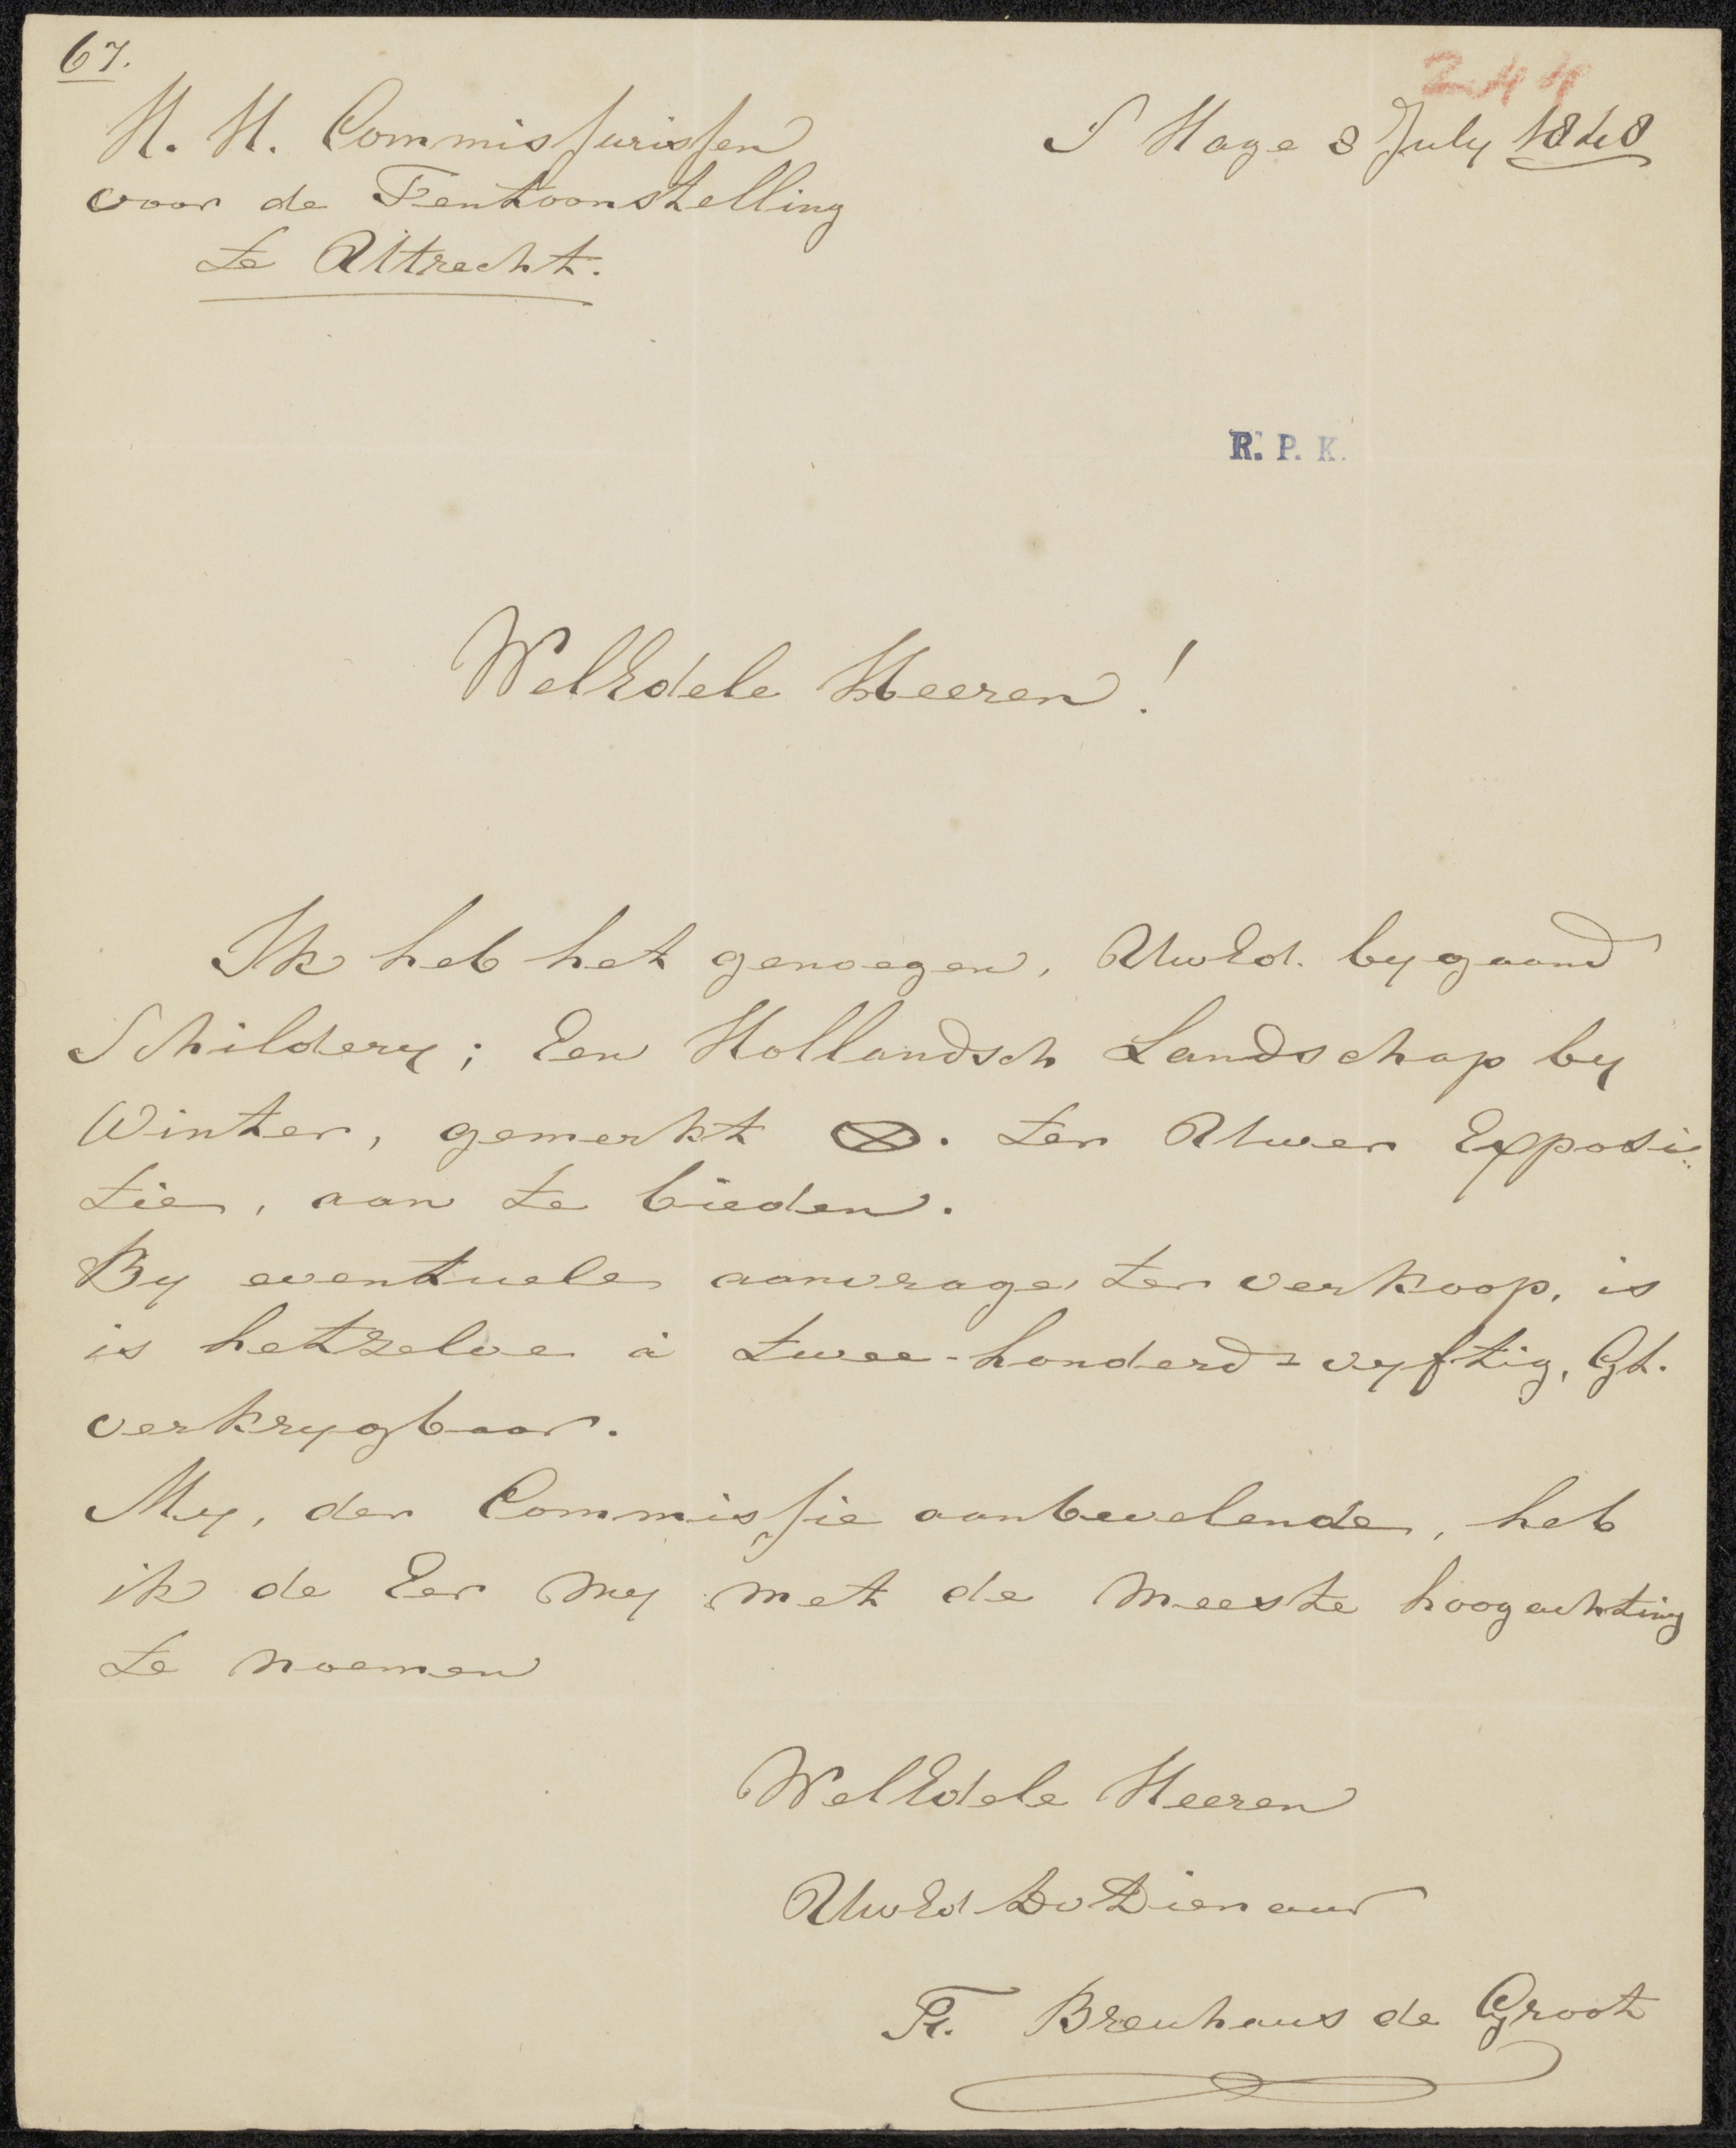 67.
244
H. H. Commissurissen
S Hage 8 July 1848
voor de Tentoonstelling
te Uttrecht.
R. P. K.
WelEdele Heeren!
Ik heb het genoegen, UwEd. bygaand
Schildery; Een Hollandsch Landschap by
Winter, gemerkt ⊗. ter Uwer Exposi-
tie, aan te bieden.
By eventuele aanvrage, ter verkoop, is
is hetzelve à twee-honderd=vyftig, Gl.
verkrygbaar.
My, der Commissie aanbevelende, heb
ik de Eer my met de meeste hoogachting
te noemen
WelEdele Heeren
UwEd Dv Dienaar
Fr. Breuhaus de Groot